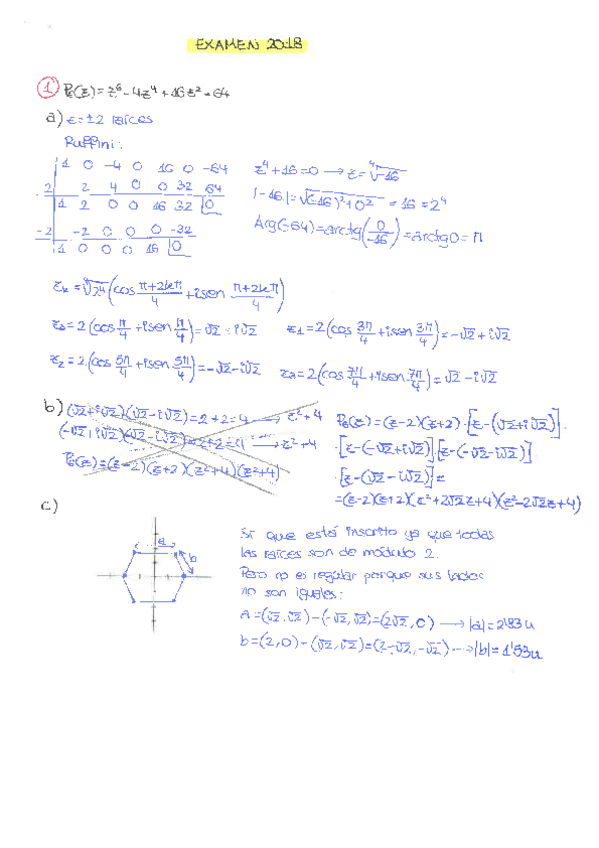 EXAMEN 2018
1 P₆(z) = z⁶ - 4z⁴ + 16z² - 64
a) z = ±2 raíces
Ruffini:
1 0 -4 0 16 0 -64
2 2 4 0 0 32 64
1 2 0 0 16 32 0
-2 -2 0 0 0 -32
1 0 0 0 16 0
z⁴ + 16 = 0 → z = ⁴√-16
|-16| = √(-16)² + 0² = 16 = 2⁴
Arg(-64) = arctg(0/-16) = arctg 0 = π
z_k = ⁴√2⁴ (cos (π+2kπ)/4 + i sen (π+2kπ)/4)
z₀ = 2(cos π/4 + i sen π/4) = √2 + i√2 z₁ = 2(cos 3π/4 + i sen 3π/4) = -√2 + i√2
z₂ = 2(cos 5π/4 + i sen 5π/4) = -√2 - i√2 z₃ = 2(cos 7π/4 + i sen 7π/4) = √2 - i√2
b) (√2+i√2)(√2-i√2) = 2+2 = 4 → z²+4
(-√2+i√2)(-√2-i√2) = 2+2 = 4 → z²+4
P₆(z) = (z-2)(z+2)(z²+4)(z²+4)
P₆(z) = (z-2)(z+2)·[z-(√2+i√2)]·
·[z-(-√2+i√2)]·[z-(-√2-i√2)]·
·[z-(√2-i√2)] =
= (z-2)(z+2)(z²+2√2z+4)(z²-2√2z+4)
c)
a
b
Sí que está inscrito ya que todas
las raíces son de módulo 2.
Pero no es regular porque sus lados
no son iguales:
a = (√2,√2) - (-√2,√2) = (2√2, 0) → |a| = 2'83 u
b = (2,0) - (√2,√2) = (2-√2, -√2) → |b| = 1'53 u